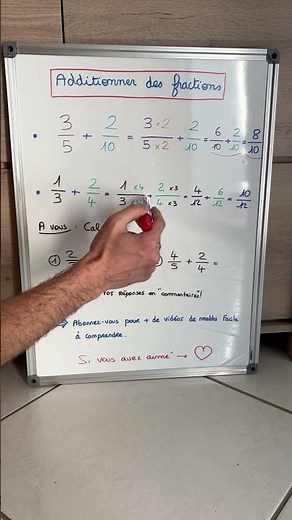 Additionner des fractions
• 3/5 + 2/10 = 3×2/5×2 + 2/10 = 6/10 + 2/10 = 8/10
• 1/3 + 2/4 = 1×4/3 + 2×3/4×3 = 4/12 + 6/12 = 10/12
A vous : Cal
① 2/
4/5 + 2/4 =
vos réponses en "commentaires!
→ Abonnez-vous pour + de vidéos de maths facile
à comprendre.
Si vous avez aimé → ♡